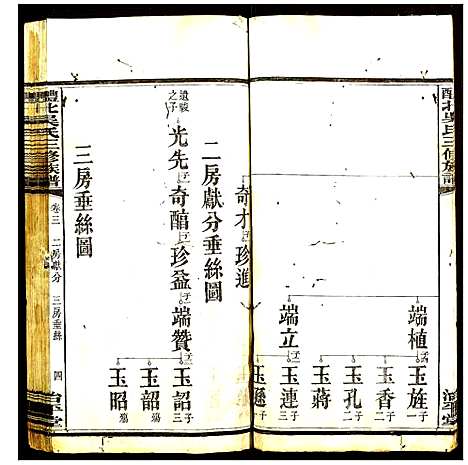 醴北吳氏三修族譜
端植
玉旌
玉香
玉孔
玉蔣
端立
玉連
玉遜
奇才 珍進
二房獻分垂絲圖
遺駿之子
光先 奇醕 珍益 端贊
玉詔
玉韶
玉昭
三房垂絲圖
醴北吳氏三修族譜
卷三 二房獻分 三房垂絲 四